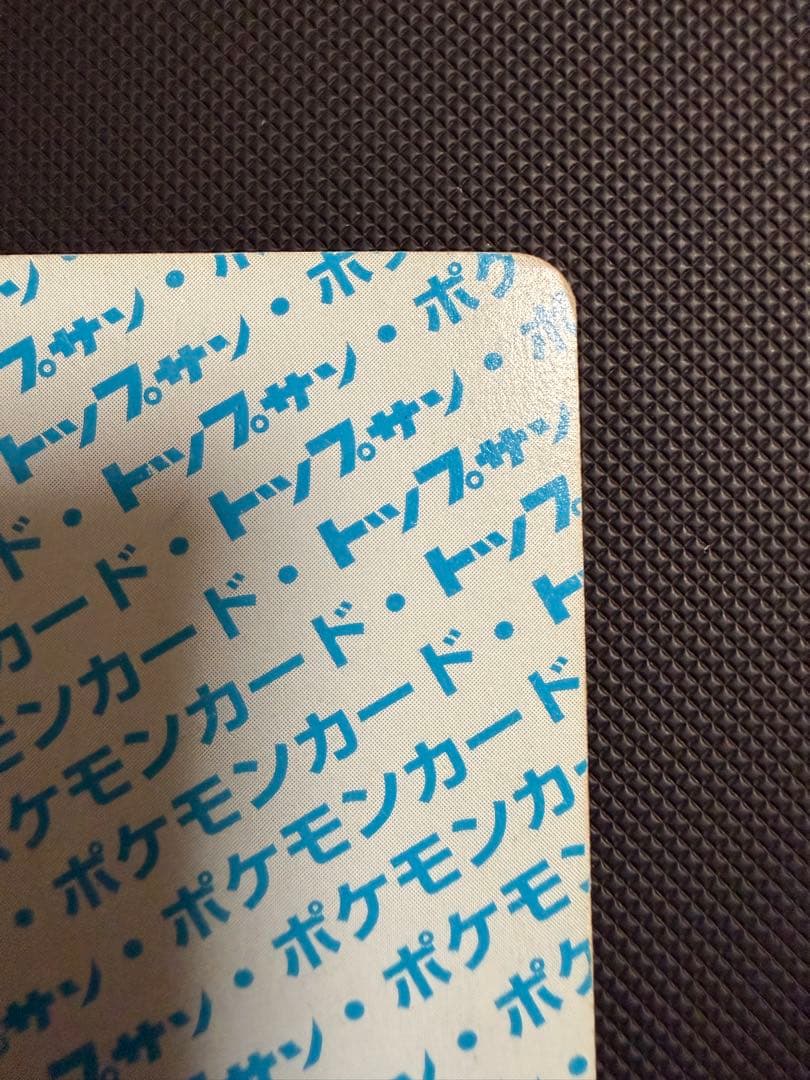 ン
プサン・
トップサン・ポ
ド・トップサン・ポケ
カード・トップサン・ポ
モンカード・トップサン
ケモンカード・トップ
・ポケモンカード・ト
サン・ポケモンカード
プサン・ポケモンカー
サン・ポケモン
・ポケ
・